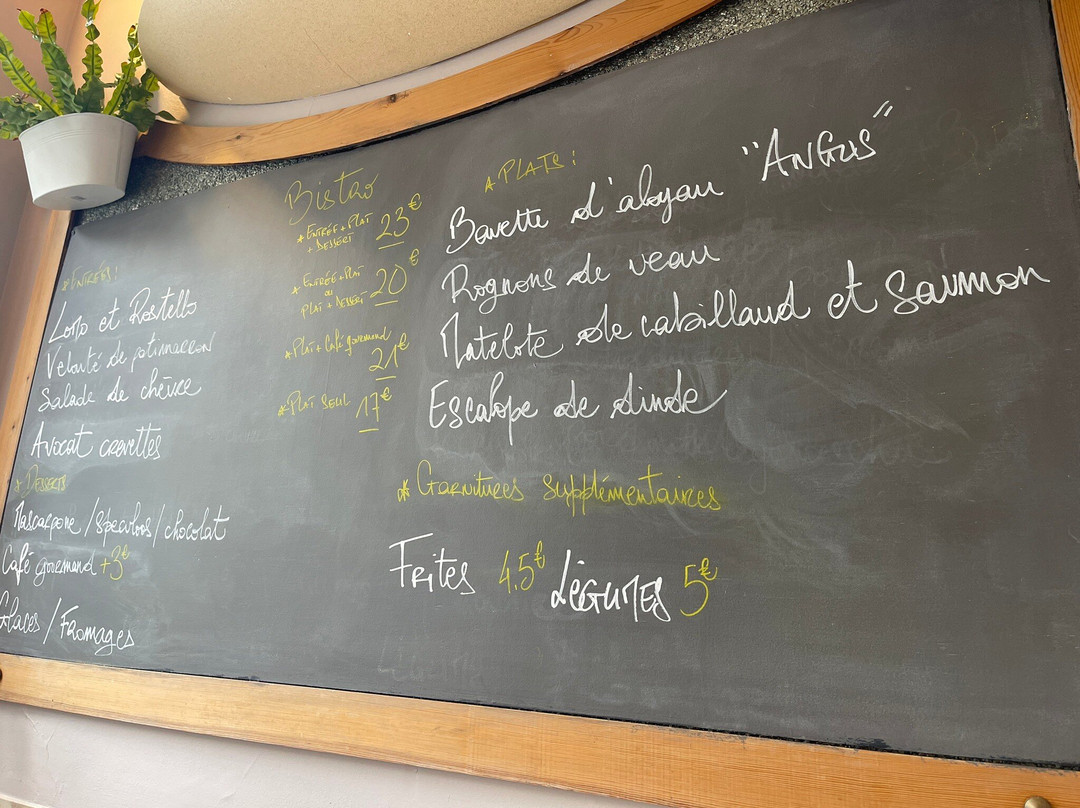 * ENTRÉES:
Lomo et Rostello
Velouté de potimarron
Salade de chèvre
Avocat crevettes
* DESSERTS
Mascarpone / Speculoos / chocolat
Café gourmand +3€
Glaces / Fromages
Bistro
* ENTRÉE + PLAT + DESSERT 23€
* ENTRÉE + PLAT ou PLAT + DESSERT 20€
* PLAT + Café gourmand 21€
* PLAT SEUL 17€
* PLATS:
Bavette d'aloyau "ANGUS"
Rognons de veau
Matelote de cabillaud et saumon
Escalope de dinde
* Garnitures supplémentaires
FRITES 4.5€ LÉGUMES 5€